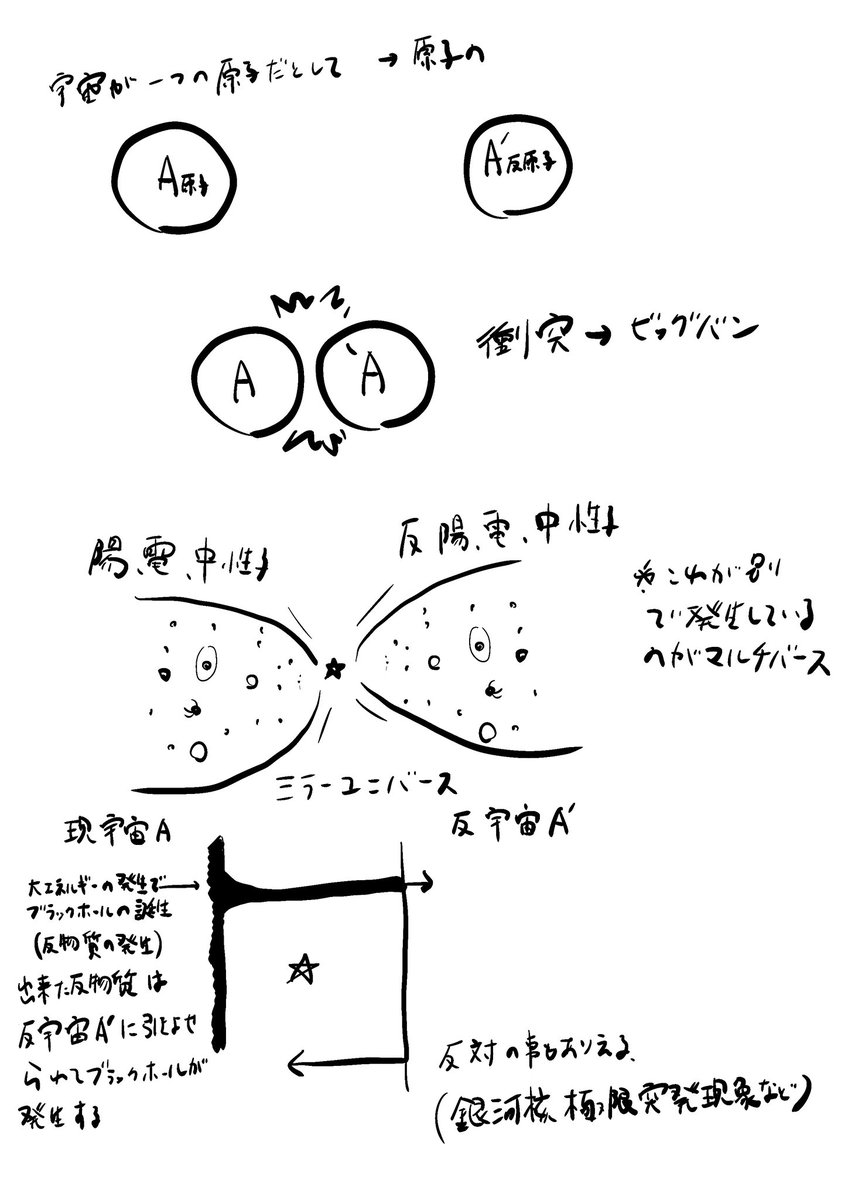 宇宙が一つの原子だとして → 原子の
A原子
A′反原子
A
`A
衝突 → ビッグバン
陽、電、中性子
反陽、電、中性子
※これが別り
で発生している
のがマルチバース
ミラーユニバース
現宇宙A
反宇宙A′
大エネルギーの発生で
ブラックホールの誕生
(反物質の発生)
出来た反物質は
反宇宙A′に引きよせ
られてブラックホールが
発生する
反対の事もありえる、
(銀河核、極限突発現象など)